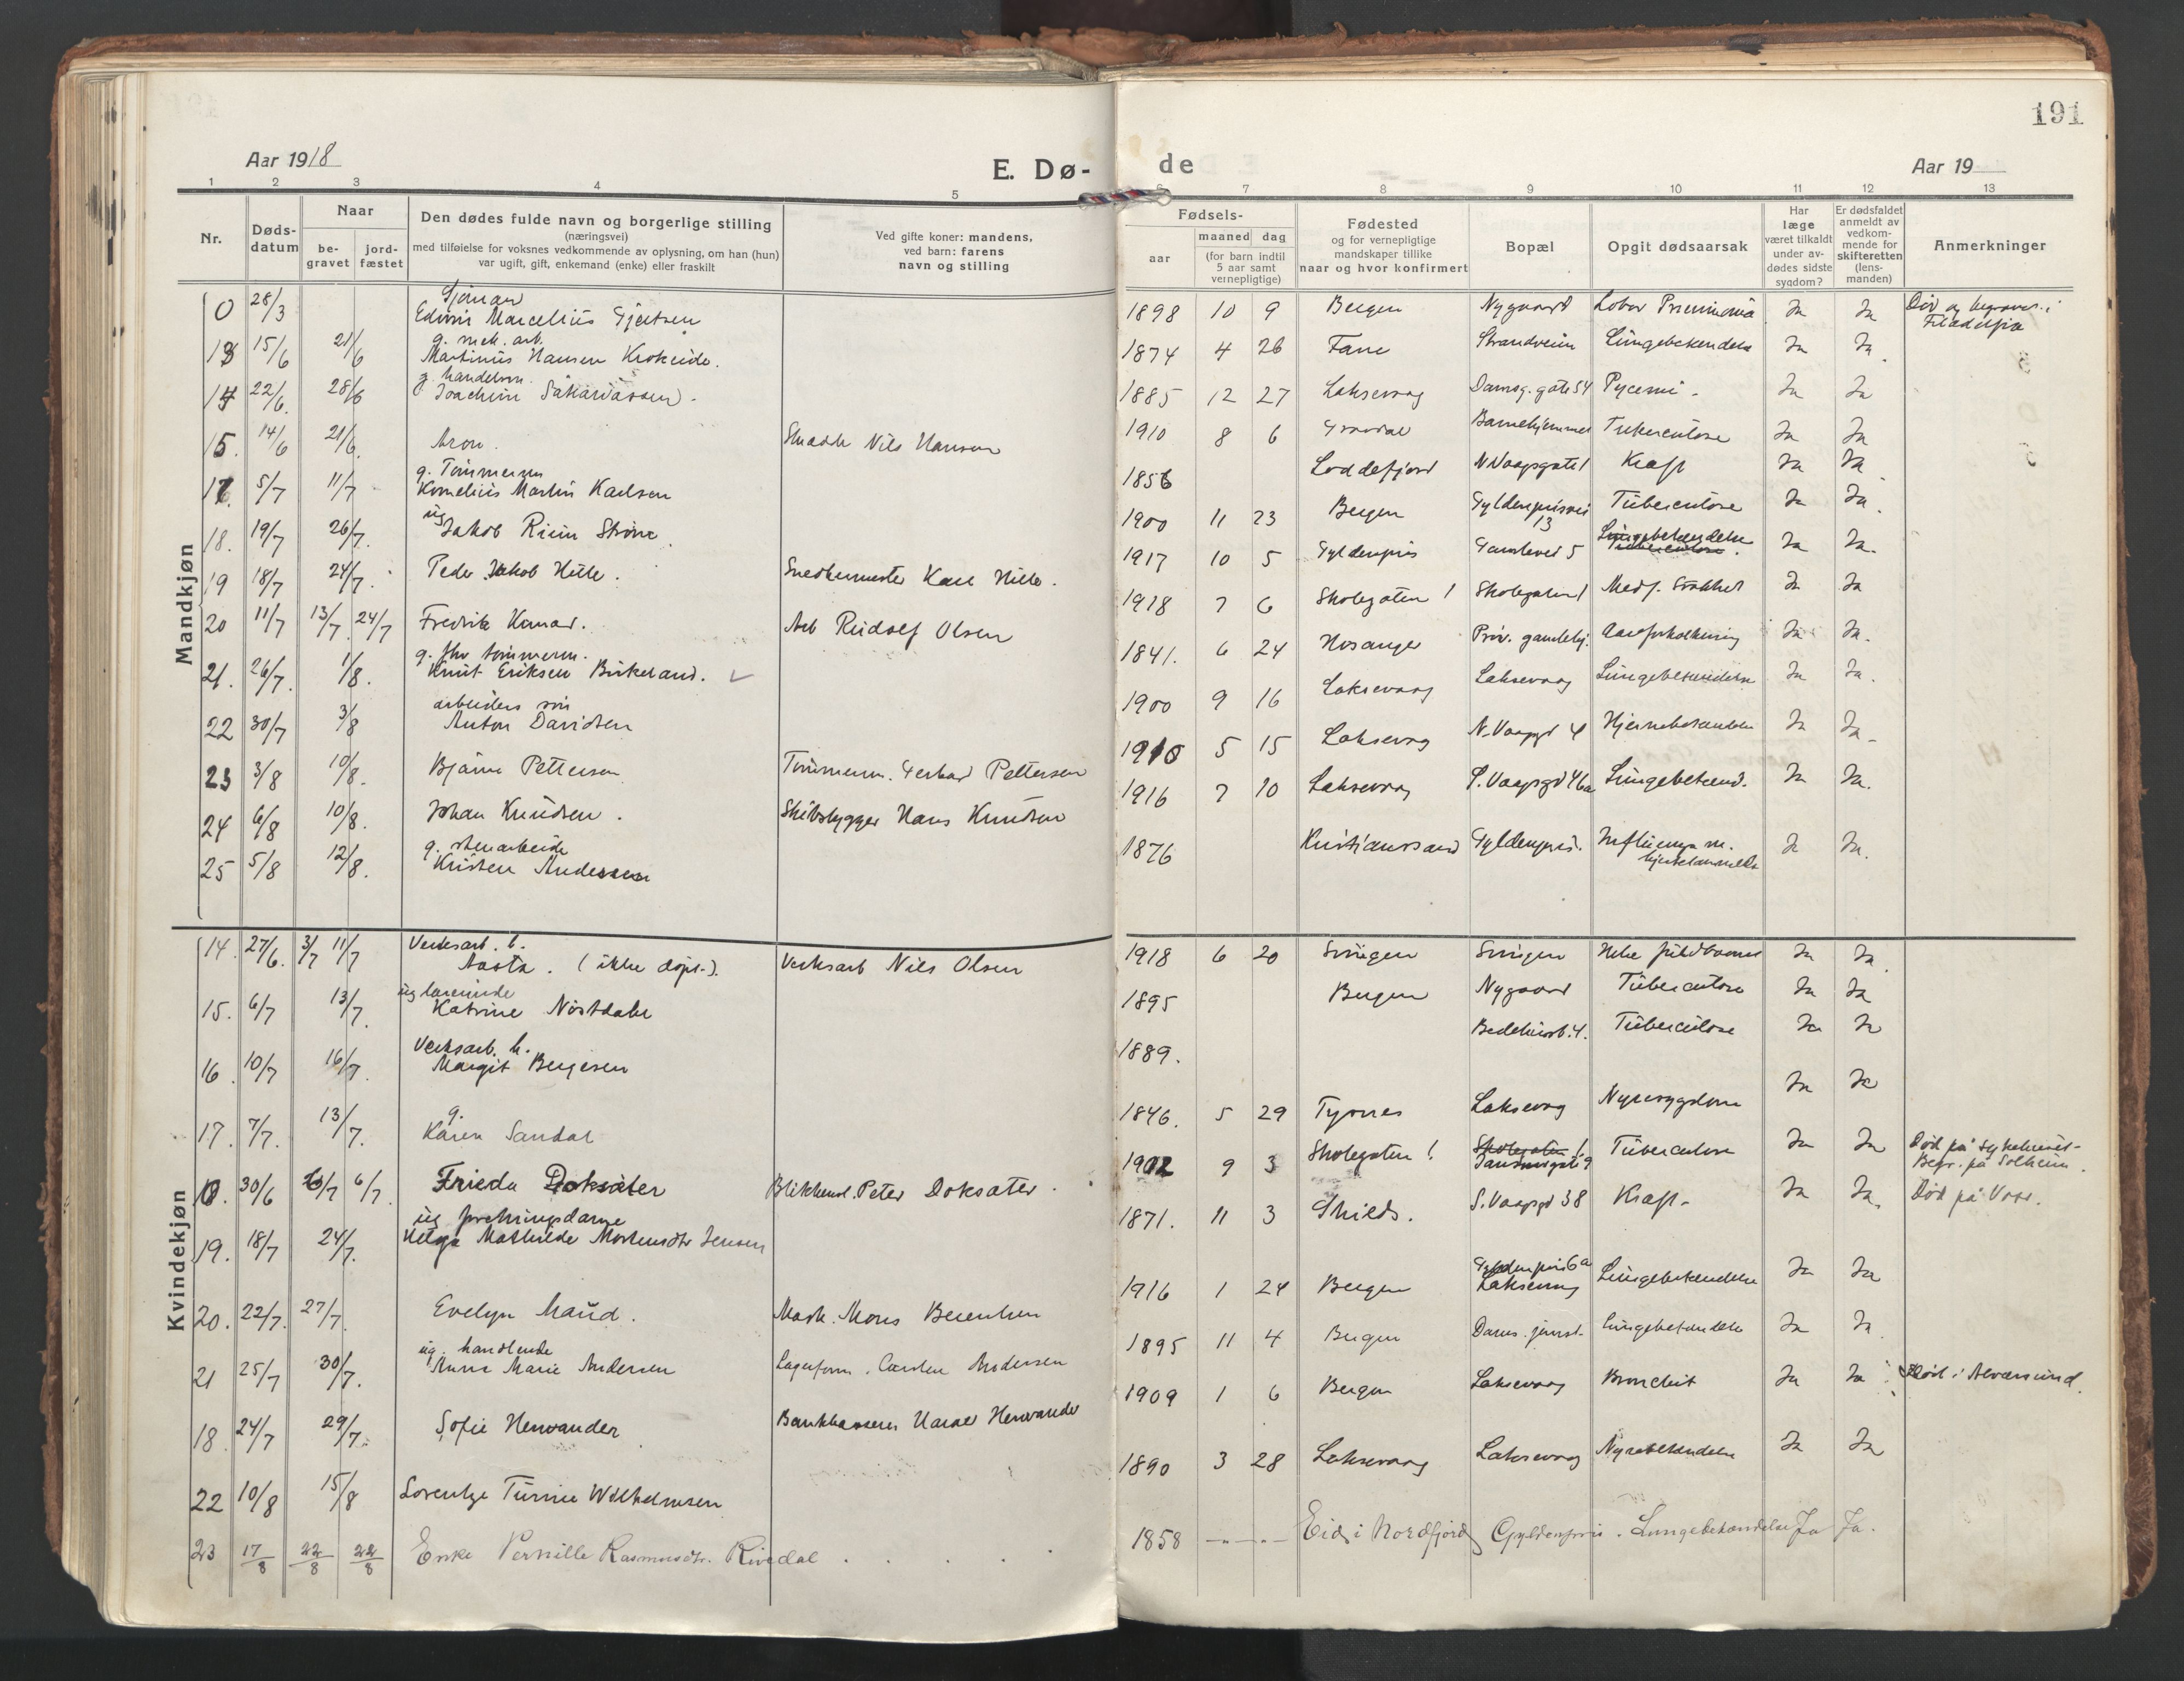 191
Aar 1918
E. Dø-
de
Aar 19
1 2 3 4 5 6 7 8 9 10 11 12 13
Nr.
Døds-
datum
Naar
be-
gravet
jord-
fæstet
Den dødes fulde navn og borgerlige stilling
(næringsvei)
med tilføielse for voksnes vedkommende av oplysning, om han (hun)
var ugift, gift, enkemand (enke) eller fraskilt
Ved gifte koner: mandens,
ved barn: farens
navn og stilling
Fødsels-
aar
maaned dag
(for barn indtil
5 aar samt
vernepligtige)
Fødested
og for vernepligtige
mandskaper tillike
naar og hvor konfirmert
Bopæl
Opgit dødsaarsak
Har
læge
været tilkaldt
under av-
dødes sidste
sygdom?
Er dødsfaldet
anmeldt av
vedkom-
mende for
skifteretten
(lens-
manden)
Anmerkninger
Mandkjøn
0 28/3 Sjøman
Edvin Marcelius Gjertsen 1898 10 9 Bergen Nygaard Lobar Pneumonia Ja Ja Død og begravet i
Filadelfia
13 15/6 21/6 g. mek. arb.
Martinus Hansen Krokeide. 1874 4 26 Fane Strandveien Lungebetendelse Ja Ja
14 22/6. 28/6 g. handelsm.
Joachim Sakariassen. 1885 12 27 Laksevaag Damsg. gate 54 Pycemi. Ja Ja
15. 14/6 21/6. Aron. Nils Hansen 1910 8 6 Barnehjemmet Tuberculose Ja Ja
5/7 11/7 g. Tømmerm
Kornelius Martin Karlsen 1856 Loddefjord N Vaagsgate 1 Kræft Ja Ja
18. 19/7 26/7. ug
Jakob Strøne 1900 11 23 Bergen Gyldenprisvei
13 Tuberculose Ja Ja.
19 18/7 24/7. Peder Jakob Hille. Snedkermester Karl Hille. 1917 10 5 Gyldenpris 5 Lungebetendelse
Tuberculose. Ja Ja.
20 11/7 13/7. 24/7 Fredrik Konar. Arb Rudolf Olsen 1918 7 6 Skolegaten 1 Skolegaten 1 Medf. Svakhet Ja Ja
21. 26/7. 1/8. g. fhv tømmerm.
Knut Eriksen Birkeland. 1841. 6 24 Hosanger Priv. gamlehj. Aareforkalkning Ja Ja.
22 30/7 3/8 arbeiders søn
Anton Davidsen 1900 9 16 Laksevaag Laksevaag Lungebetendelse Ja Ja.
23 3/8 10/8. Bjarne Pettersen Tømmerm. Gerhard Pettersen 1910 5 15 Laksevaag N. Vaagsgt 4 Hjernebetendelse Ja Ja.
24 6/8 10/8. Johan Knudsen. Skibsbygger Hans Knudsen 1916 7 10 Laksevaag S. Vaagsgt 46a Lungebetend. Ja Ja.
25 5/8 12/8. g. stenarbeide
Kristen Andersen 1876 Kristianssand Gyldenpris. Influensa m.
hjertelammelse Ja Ja.
Kvindekjøn
14. 27/6. 3/7 11/7 Verksarb. b.
Aasta. (ikke døpt.). Verksarb Nils Olsen 1918 6 20 Ja Ja.
15. 6/7 13/7. ug lærerinde
Katrine Nøstdahl 1895 Bergen Nygaard Tuberculose Ja Ja
16. 10/7 16/7. Verksarb. h.
Margit Bergesen 1889. Bedehusb. 4. Tuberculose Ja Ja
17. 7/7. 13/7. g.
Karen Sandal 1846. 5 29 Tysnes Laksevaag Nyresygdom Ja Ja
30/6 6/7 6/7. Frieda Doksæter Blikkensl. Peter Doksæter. 1902 9 3 Skolegaten 1. Skolegaten 1
9 Tuberculose Ja Ja Død på sykehuset.
Begr. på Solheim.
19. 18/7 24/7. ug forretningsdame
Helga Mathilde Mortensdtr Jensen 1871. 11 3 Shields. S. Vaagsgt 38 Kræft. Ja Ja. Død på Voss.
20. 22/7. 27/7. Evelyn Maud. Mask. Mons Berentsen 1916 1 24 Bergen Gyldenpris 6a
Laksevaag Lungebetendelse Ja Ja
21 25/7 30/7. ug. handlende
Anna Marie Andersen Lagerform. Carsten Andersen 1895 11 4 Bergen Lungebetendelse Ja Ja.
18 24/7 29/7. Sofie Herwander Bankkasserer Herwander 1909 1 6 Bergen Laksevaag Bronchit Ja Ja Død i Alversund.
22 10/8 15/8 Lorentze Wilhelmsen 1890 3 28 Laksevaag Laksevaag Nyrebetendelse Ja Ja
23 17/8 22/8 22/8 Enke Pernille Rasmusdtr. Rivedal 1858 -"- -"- Eid i Nordfjord Gyldenpris. Lungebetændelse Ja Ja.